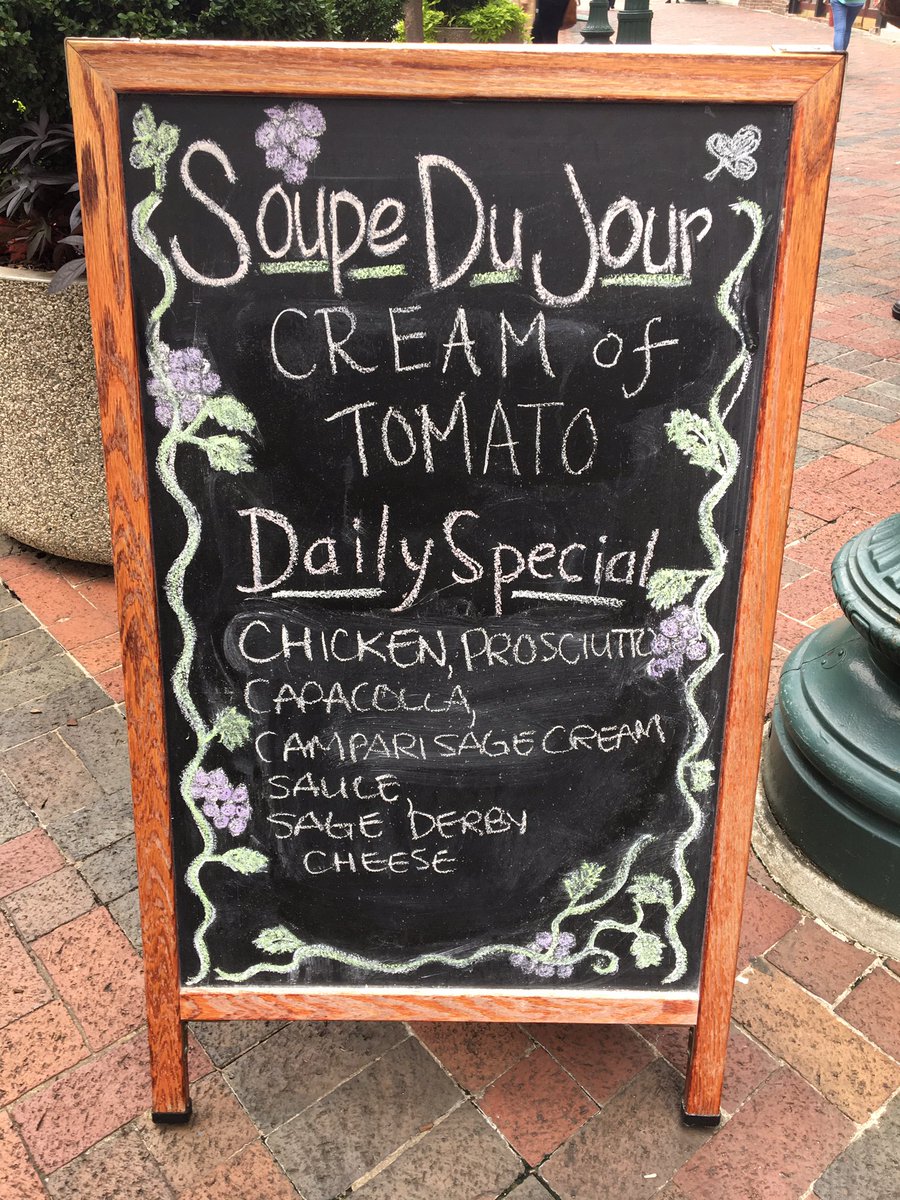 Soupe Du Jour
CREAM of
TOMATO
Daily Special
CHICKEN, PROSCIUTTO
CAPACOLLA,
CAMPARI SAGE CREAM
SAUCE,
SAGE DERBY
CHEESE